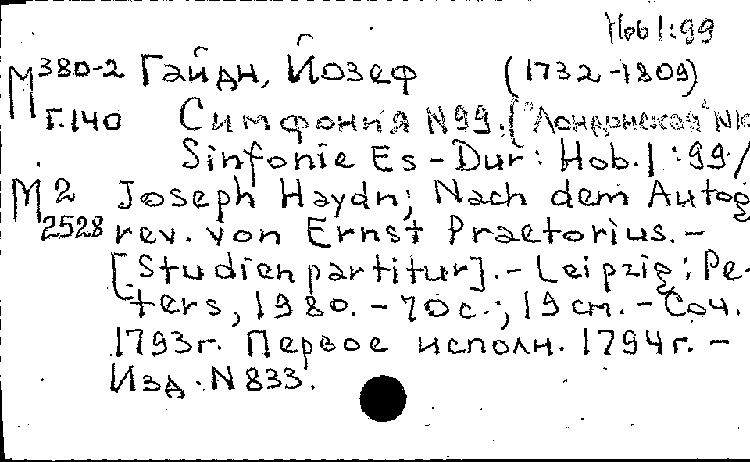 Hob I:99
М 380-2 Гайдн, Йозеф (1732-1809)
Г.140 Симфония N99. ("Лондонская" N
Sinfonie Es-Dur: Hob. I :99/
М 2 Joseph Haydn; Nach dem Autog
2528 rev. von Ernst Praetorius. -
[Studienpartitur]. - Leipzig: Pe-
ters, 1980. - 70 с.; 19 cm. - Соч.
1793г. Первое исполн. 1794г. -
Изд. N 833.